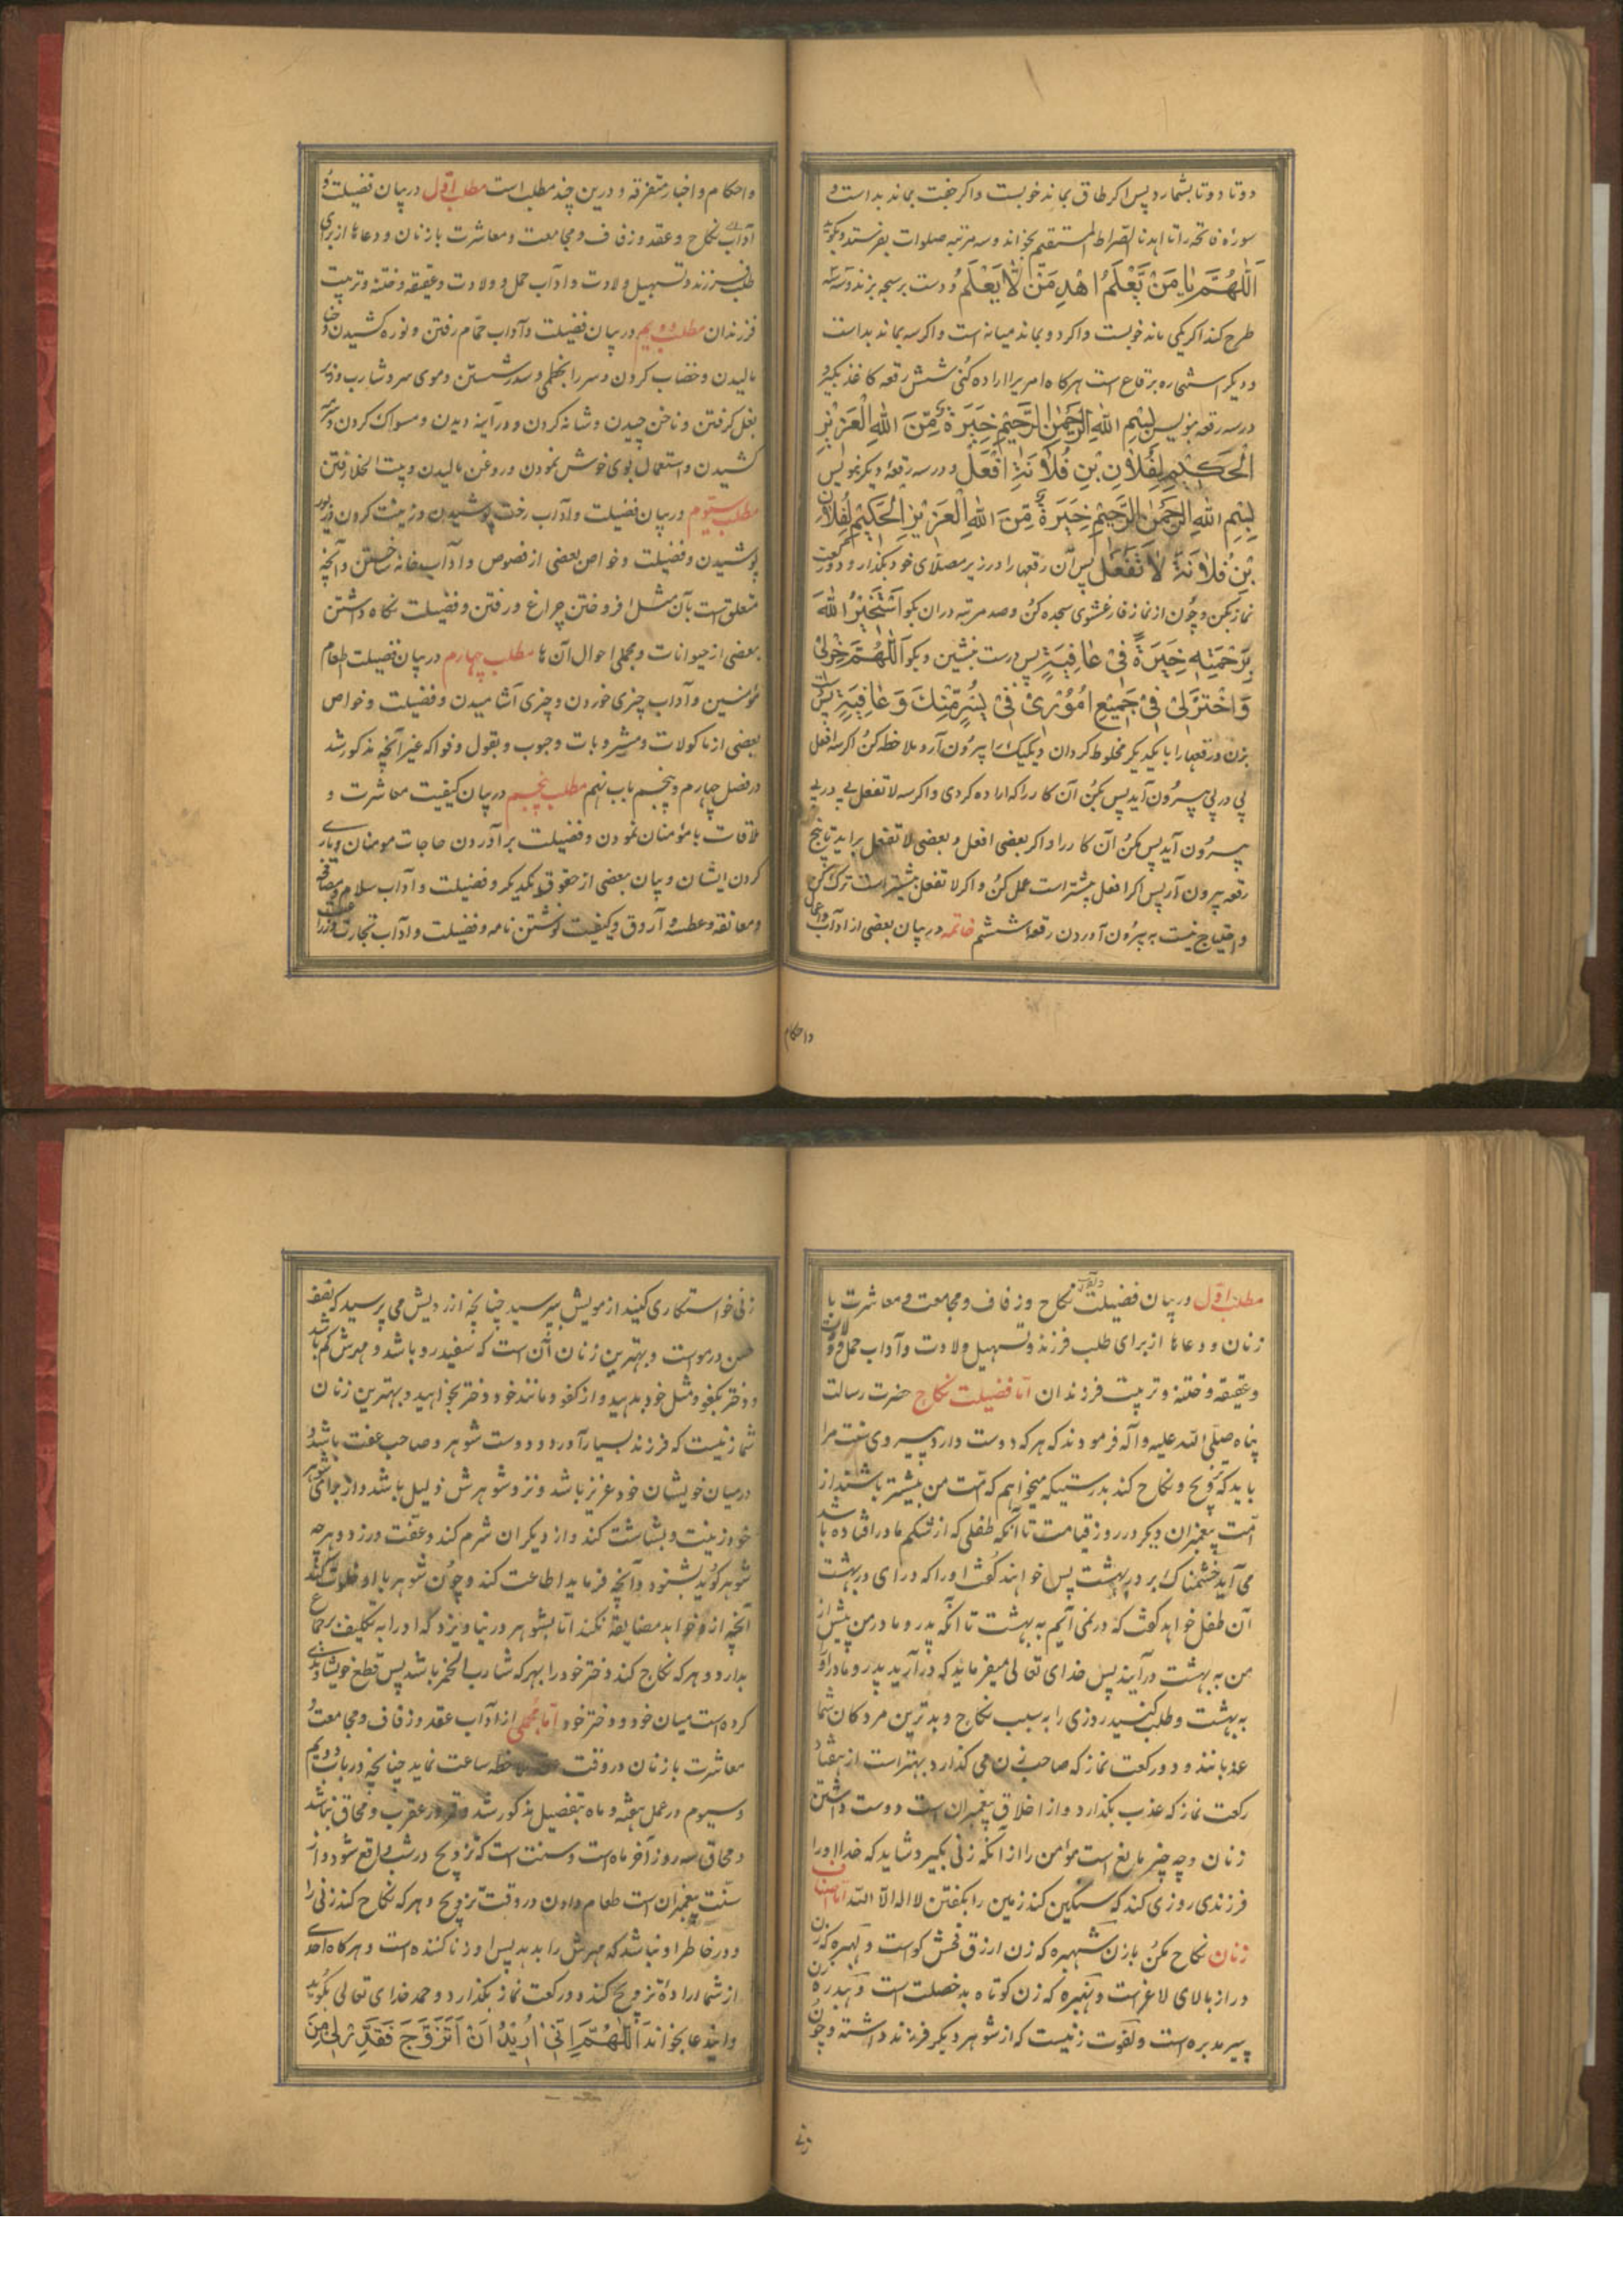 دوتا دوتا بشمارد پس اکر طاق بماند خوبست واکر جفت بماند بداست و
سوره فاتحه را تا اهدنا الصراط المستقیم بخواند و سه مرتبه صلوات بفرستد و بکوید
اَللّٰهُمَّ یٰا مَنْ یَّعْلَمُ اهْدِ مَنْ لٰا یَعْلَمُ و دست برسبحه بزند و سه سه
طرح کند اکر یکی ماند خوبست واکر دو بماند میانه است واکر سه بماند بداست
و دیکر استخاره برقاع است هرکاه امریرا اراده کنی شش رقعه کاغذ بکیر و
در سه رقعه بنویس بِسْمِ اللهِ الرَّحْمٰنِ الرَّحِیْمِ خِیَرَةٌ مِّنَ اللهِ الْعَزِیْزِ
الْحَکِیْمِ لِفُلٰانِ بْنِ فُلٰانَةٍ اَفْعَلْ و در سه رقعه دیکر بنویس
بِسْمِ اللهِ الرَّحْمٰنِ الرَّحِیْمِ خِیَرَةٌ مِّنَ اللهِ الْعَزِیْزِ الْحَکِیْمِ لِفُلٰانِ
بْنِ فُلٰانَةٍ لٰا تَفْعَلْ پس آن رقعها را در زیر مصلای خود بکذار و دو رکعت
نماز بکن و چون از نماز فارغ شوی سجده کن و صد مرتبه دران بکو اَسْتَخِیْرُ اللهَ
بِرَحْمَتِهِ خِیَرَةً فِیْ عٰافِیَةٍ پس درست بنشین و بکو اَللّٰهُمَّ خِرْلِیْ
وَاخْتَرْلِیْ فِیْ جَمِیْعِ اُمُوْرِیْ فِیْ یُسْرٍ مِّنْكَ وَ عٰافِیَةٍ پس دست
بزن و رقعها را با یکدیکر مخلوط کردان و یکیک را بیرون آر و ملاحظه کن اکر سه افعل
پی در پی بیرون آید پس بکن آن کار را که اراده کردی واکر سه لا تفعل پی در پی
بیرون آید پس مکن آن کار را واکر بعضی افعل و بعضی لا تفعل براید تا پنج
رقعه بیرون آر پس اکر افعل بیشتر است عمل کن واکر لا تفعل بیشتر است ترک کن
و احتیاج نیست به بیرون آوردن رقعه ششم خاتمه در بیان بعضی از آداب و اعمال
واحکام
واحکام و اخبار متفرقه و درین چند مطلب است مطلب اول در بیان فضیلت و
آداب نکاح و عقد و زفاف و مجامعت و معاشرت با زنان و دعاها از برای
طلب فرزند و تسهیل ولادت و آداب حمل و ولادت و عقیقه و ختنه و تربیت
فرزندان مطلب دویم در بیان فضیلت و آداب حمام رفتن و نوره کشیدن و حنا
مالیدن و خضاب کردن و سر را بخطمی و سدر شستن و موی سر و شارب و زیر
بغل کرفتن و ناخن چیدن و شانه کردن و در آینه دیدن و مسواک کردن و سرمه
کشیدن و استعمال بوی خوش نمودن و روغن مالیدن و بیت الخلا رفتن
مطلب سیوم در بیان فضیلت و آداب رخت پوشیدن و زینت کردن و زیور
پوشیدن و فضیلت و خواص بعضی از فصوص و آداب خانه ساختن و آنچه
متعلق است بآن مثل افروختن چراغ و رفتن و فضیلت نکاه داشتن
بعضی از حیوانات و مجملی احوال آن ها مطلب چهارم در بیان فضیلت اطعام
مؤمنین و آداب چیزی خوردن و چیزی آشامیدن و فضیلت و خواص
بعضی از ماکولات و مشروبات و حبوب و بقول و فواکه غیر آنچه مذکور شد
در فصل چهارم و پنجم باب نهم مطلب پنجم در بیان کیفیت معاشرت و
ملاقات با مؤمنان نمودن و فضیلت برآوردن حاجات مومنان و یاری
کردن ایشان و بیان بعضی از حقوق یکدیکر و فضیلت و آداب سلام و مصافحه
و معانقه و عطسه و آروق و کیفیت نوشتن نامه و فضیلت و آداب تجارت و زراعت
مطلب اول در بیان فضیلت و آداب نکاح و زفاف و مجامعت و معاشرت با
زنان و دعاها از برای طلب فرزند و تسهیل ولادت و آداب حمل و ولادت
و عقیقه و ختنه و تربیت فرزندان اما فضیلت نکاح حضرت رسالت
پناه صلی الله علیه وآله فرمودند که هر که دوست دارد پیروی سنت مرا
باید که تزویج و نکاح کند بدرستیکه میخواهم که امت من بیشتر باشند از
امت پیغمبران دیکر در روز قیامت تا آنکه طفلی که از شکم مادر افتاده باشد
می آید خشمناک بر در بهشت پس خواهند کفت اورا که درای در بهشت
آن طفل خواهد کفت که در نمی آیم به بهشت تا آنکه پدر و مادر من پیش از
من به بهشت درآیند پس خدای تعالی میفرماید که درآرید پدر و مادر او را
به بهشت و طلب کنید روزی را به سبب نکاح و بدترین مردکان شما
عذبانند و دو رکعت نماز که صاحب زن می کذارد بهتر است از هفتاد
رکعت نماز که عذب بکذارد و از اخلاق پیغمبران است دوست داشتن
زنان و چه چیز مانع است مؤمن را از آنکه زنی بکیرد شاید که خدا اورا
فرزندی روزی کند که سنکین کند زمین را بکفتن لا اله الا الله اما اصناف
زنان نکاح مکن بازن شهبره که زن ازرق فحش کو است و لهبره که زن
دراز بالای لاغر است و نهبره که زن کوتاه بد خصلت است و هیدره زن
پیر مدبره است و لفوت زنیست که از شوهر دیکر فرزند داشته و چون
زنی
زنی خواستکاری کنید از مویش بپرسید چنانچه از رویش می پرسید که نصف
حسن در مو است و بهترین زنان آن است که سفید رو باشد و مهرش کم باشد
و دختر بکفو و مثل خود بدهید و از کفو و مانند خود دختر بخواهید و بهترین زنان
شما زنیست که فرزند بسیار آورد و دوست شوهر و صاحب عفت باشد و
در میان خویشان خود عزیز باشد و نزد شوهرش ذلیل باشد و از برای شوهر
خود زینت و بشاشت کند و از دیکران شرم کند و عفت ورزد و هر چه
شوهر کوید بشنود و آنچه فرماید اطاعت کند و چون شوهر با او خلوت کند
آنچه از او خواهد مضایقه نکند اما بشوهر در نیاویزد که اورا به تکلیف بر جماع
بدارد و هر که نکاح کند دختر خود را بهر که شارب الخمر باشد پس قطع خویشاوندی
کرده است میان خود و دختر خود اما مجملی از آداب عقد و زفاف و مجامعت و
معاشرت با زنان در وقت عقد ملاحظه ساعت نماید چنانچه در باب دویم
و سیوم در عمل هفته و ماه بتفصیل مذکور شد و قمر در عقرب و محاق نباشد
و محاق سه روز آخر ماه است و سنت است که تزویج در شب واقع شود و از
سنت پیغمبران است طعام دادن در وقت تزویج و هر که نکاح کند زنی را
و در خاطر او نباشد که مهرش را بدهد پس او زنا کننده است و هرکاه احدی
از شما ارادهٔ تزویج کند دو رکعت نماز بکذارد و حمد خدای تعالی بکوید
و ایندعا بخواند اَللّٰهُمَّ اِنِّیْ اُرِیْدُ اَنْ اَتَزَوَّجَ فَقَدِّرْ لِیْ مِنَ